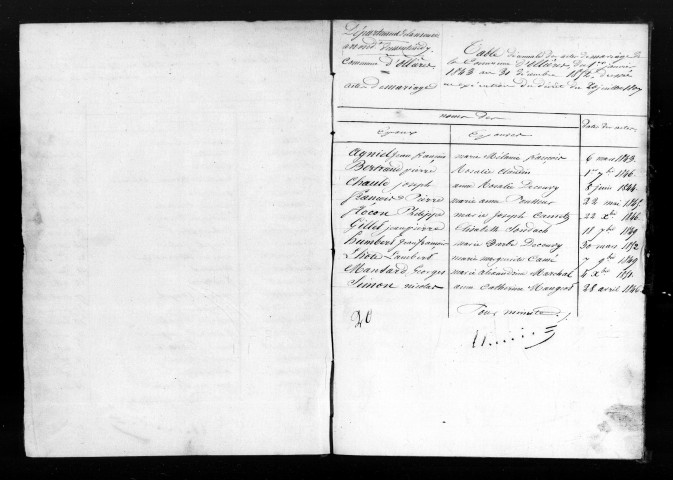 Département de la meuse
arrondt de montmédy
Commune d'Ollières
actes de mariage
Table décennale des actes de mariage de
la Commune d'Ollières, du 1er janvier
1843 au 31 décembre 1852, dressée
en exécution du décret du 20 juillet 1807
noms des
Epoux Epouses Dates des actes
Agniel jean françois marie Mélanie 6 mars 1843.
Bertrand pierre Rosalie 1er 7bre 1846.
Chaule joseph anne Rosalie Decoury 8 juin 1844.
Pierre marie anne 22 mai
Flocon Philippe marie joseph 22 Xbre 1846
Gillet jean pierre Elisabeth 11 9bre 1849
humbert jean françois marie Barbe Decoury 30 mars 1852
Lhote Lambert marie marguerite Camé 7 9bre 1849
Mansard Georges marie alexandrine Marchal 5 Xbre
Simon nicolas anne Catherine Maugeot 28 avril 1846
20